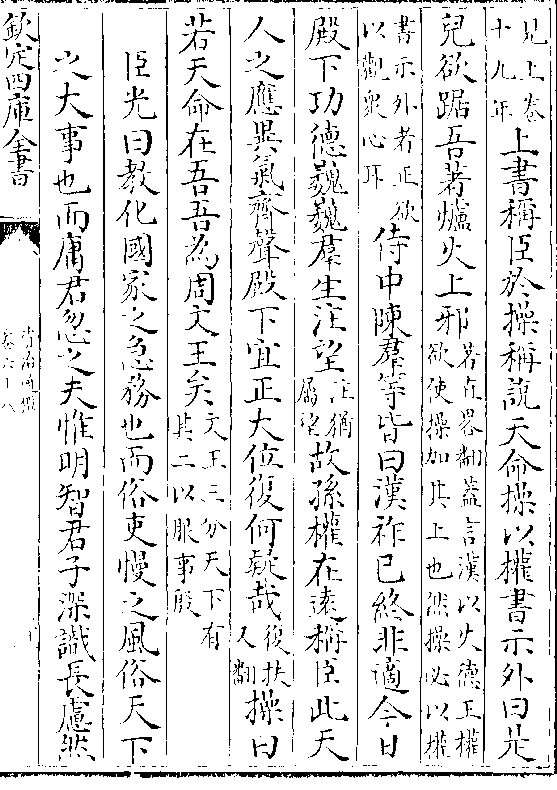 見上卷
十九年
上書稱臣於操稱説天命操以權書示外曰是
兒欲踞吾著爐火上邪
若在畧翻蓋言漢以火德王權
欲使操加其上也然操必以權
書示外者正欲
以觀衆心耳
侍中陳羣等皆曰漢祚已終非適今日
殿下功德巍巍羣生注望
注猶
屬望
故孫權在逺稱臣此天
人之應異氣齊聲殿下宜正大位復何疑哉
復扶
又翻
操曰
若天命在吾吾為周文王矣
文王三分天下有
其二以服事殷
臣光曰教化國家之急務也而俗吏慢之風俗天下
之大事也而庸君忽之夫惟明智君子深識長慮然
欽定四庫全書
資治通鑑
卷六十八